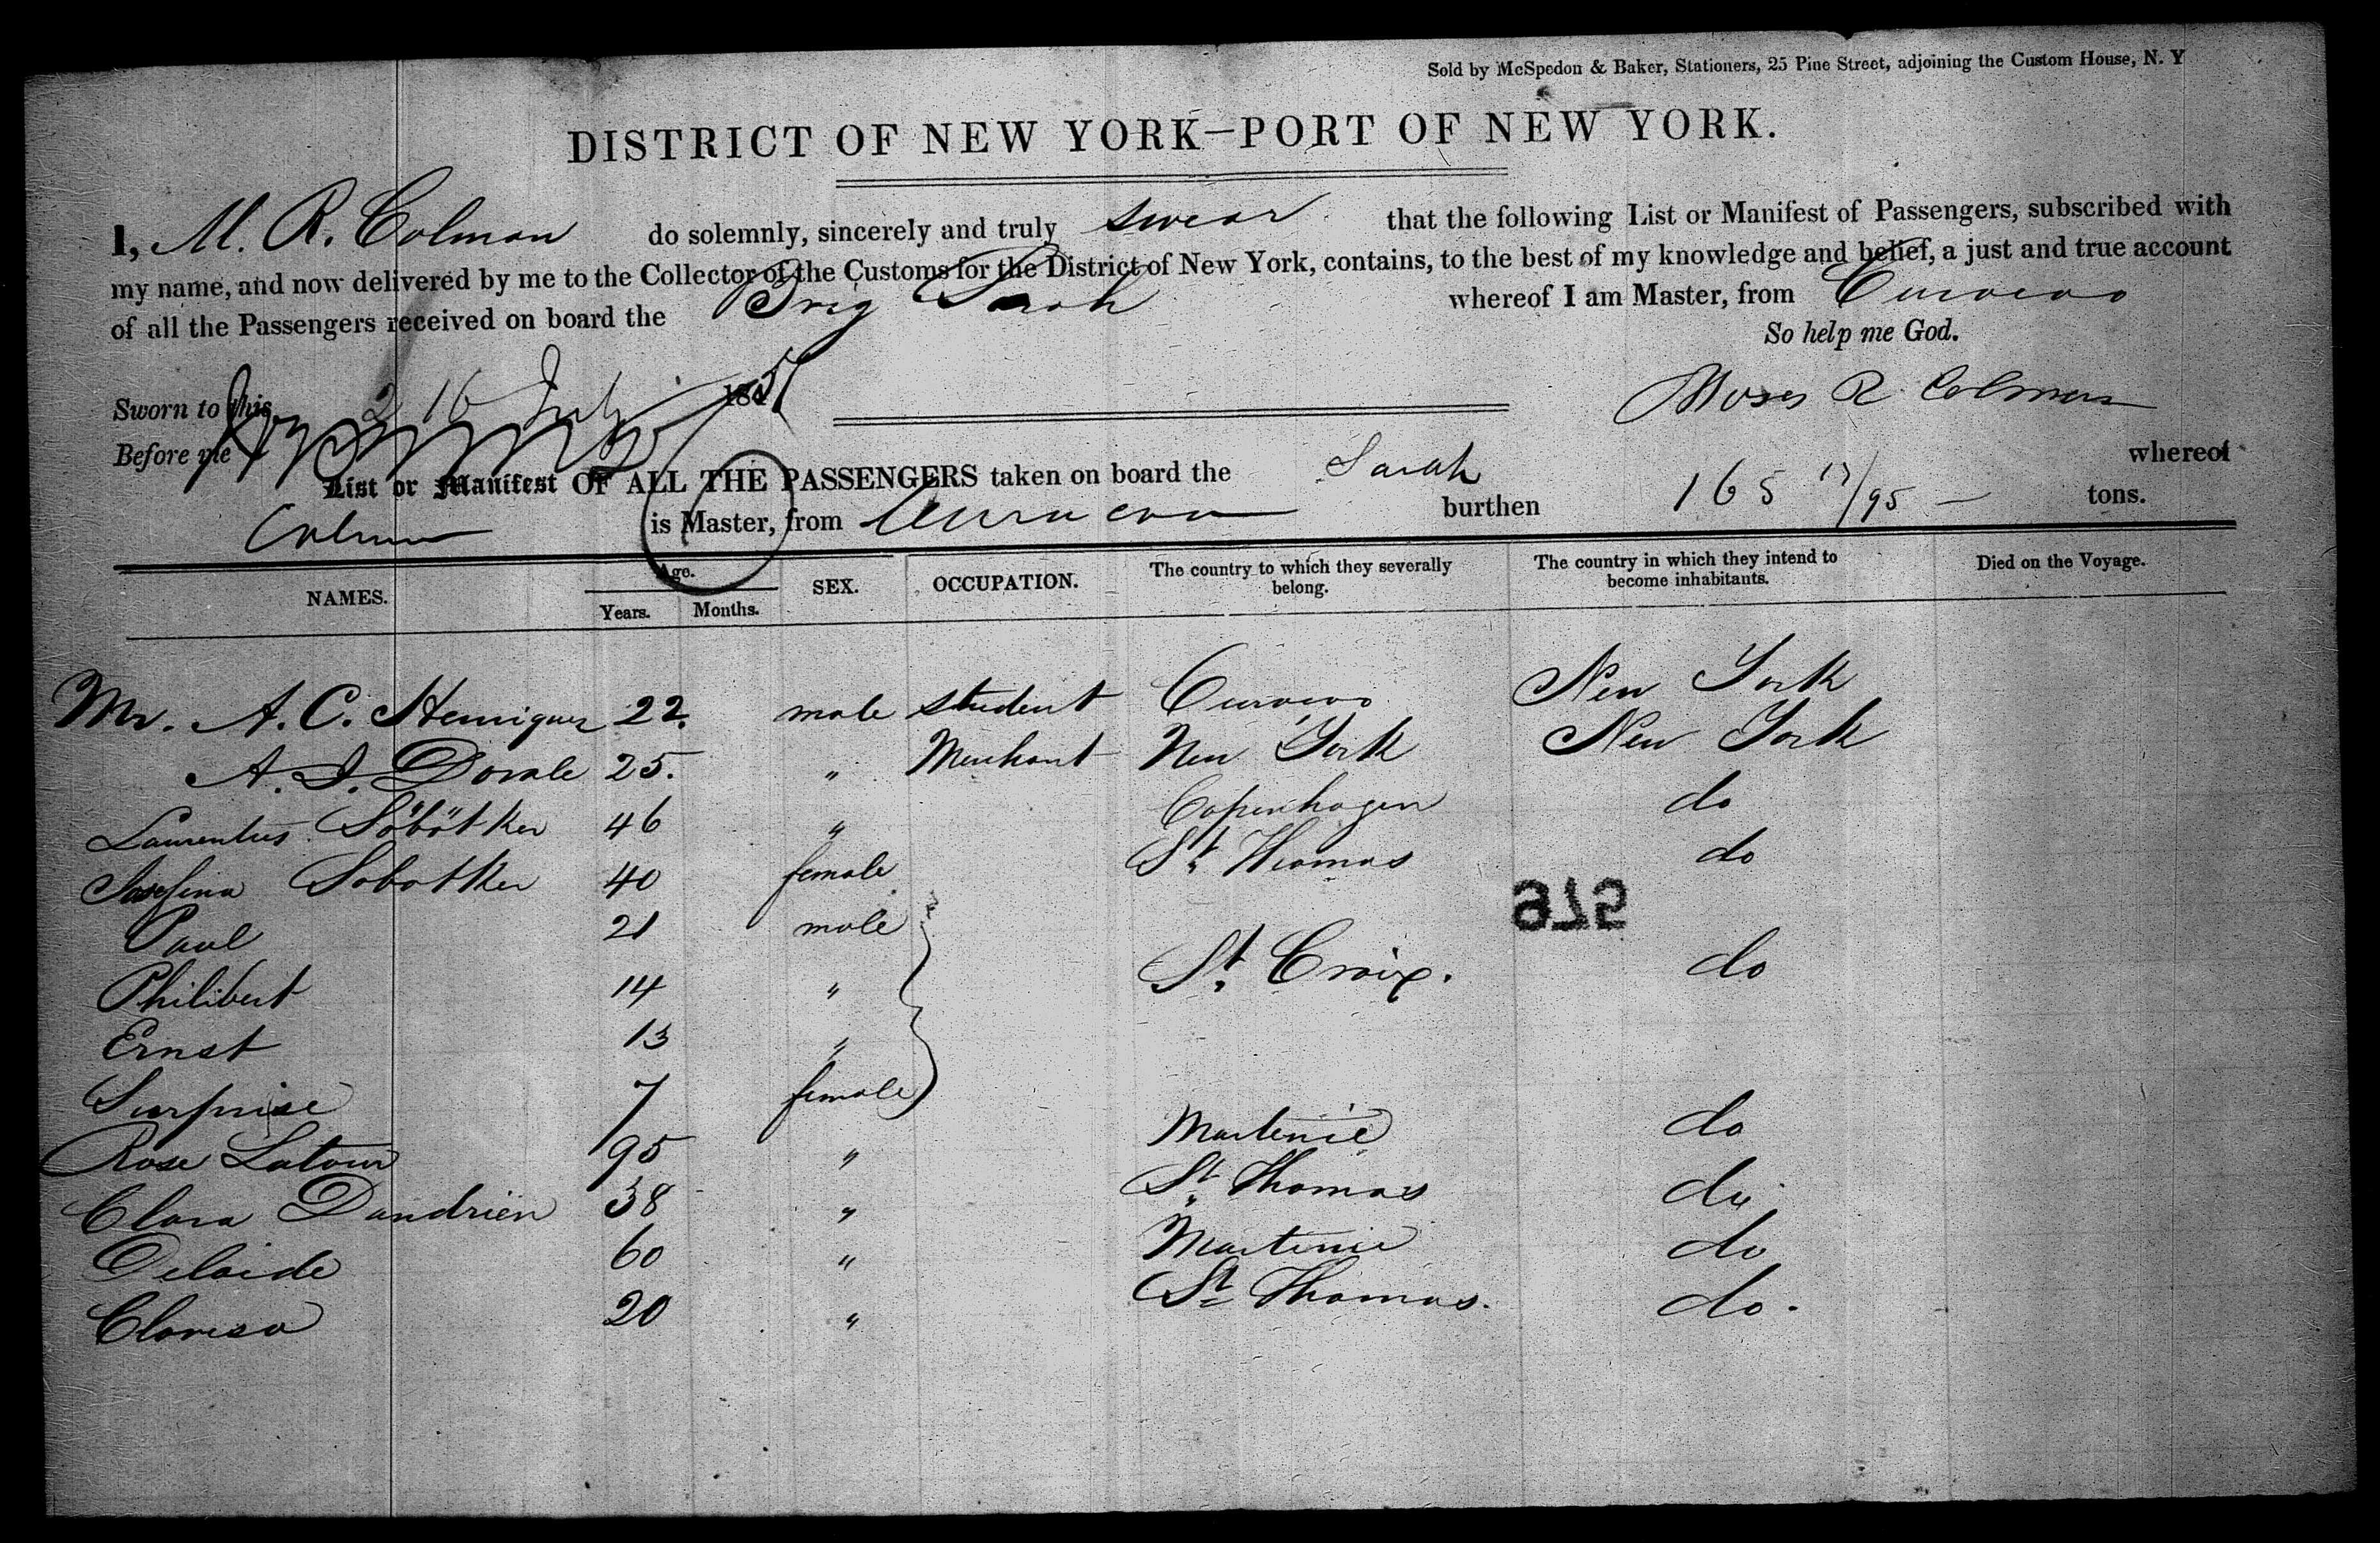 Sold by McSpedon & Baker, Stationers, 25 Pine Street, adjoining the Custom House, N. Y
DISTRICT OF NEW YORK—PORT OF NEW YORK.
I, M. R. Colman do solemnly, sincerely and truly swear that the following List or Manifest of Passengers, subscribed with
my name, and now delivered by me to the Collector of the Customs for the District of New York, contains, to the best of my knowledge and belief, a just and true account
of all the Passengers received on board the Brig Sarah whereof I am Master, from Curacao
So help me God.
Sworn to this 16 July 185
Moses R Colman
Before me
List or Manifest OF ALL THE PASSENGERS taken on board the Sarah whereof
Colman is Master, from Curacao burthen 165 13/95 tons.
NAMES. Age. Years. Months. SEX. OCCUPATION. The country to which they severally belong. The country in which they intend to become inhabitants. Died on the Voyage.
Mr. A. C. Henriquez 22. male student Curacao New York
A. J. Dovale 25. " Merchant New York New York
Laurentius Söbötker 46 " Copenhagen do
Josefina Sobotker 40 female St. Thomas do
575
Paul 21 male
Philibert 14 " St. Croix. do
Ernst 13 "
Surprise 7 female
Rose Latour 95 " Martenie do
Clara Dandrien 38 " St. Thomas do
Delaide 60 " Martenie do
Clarisa 20 " St Thomas. do.